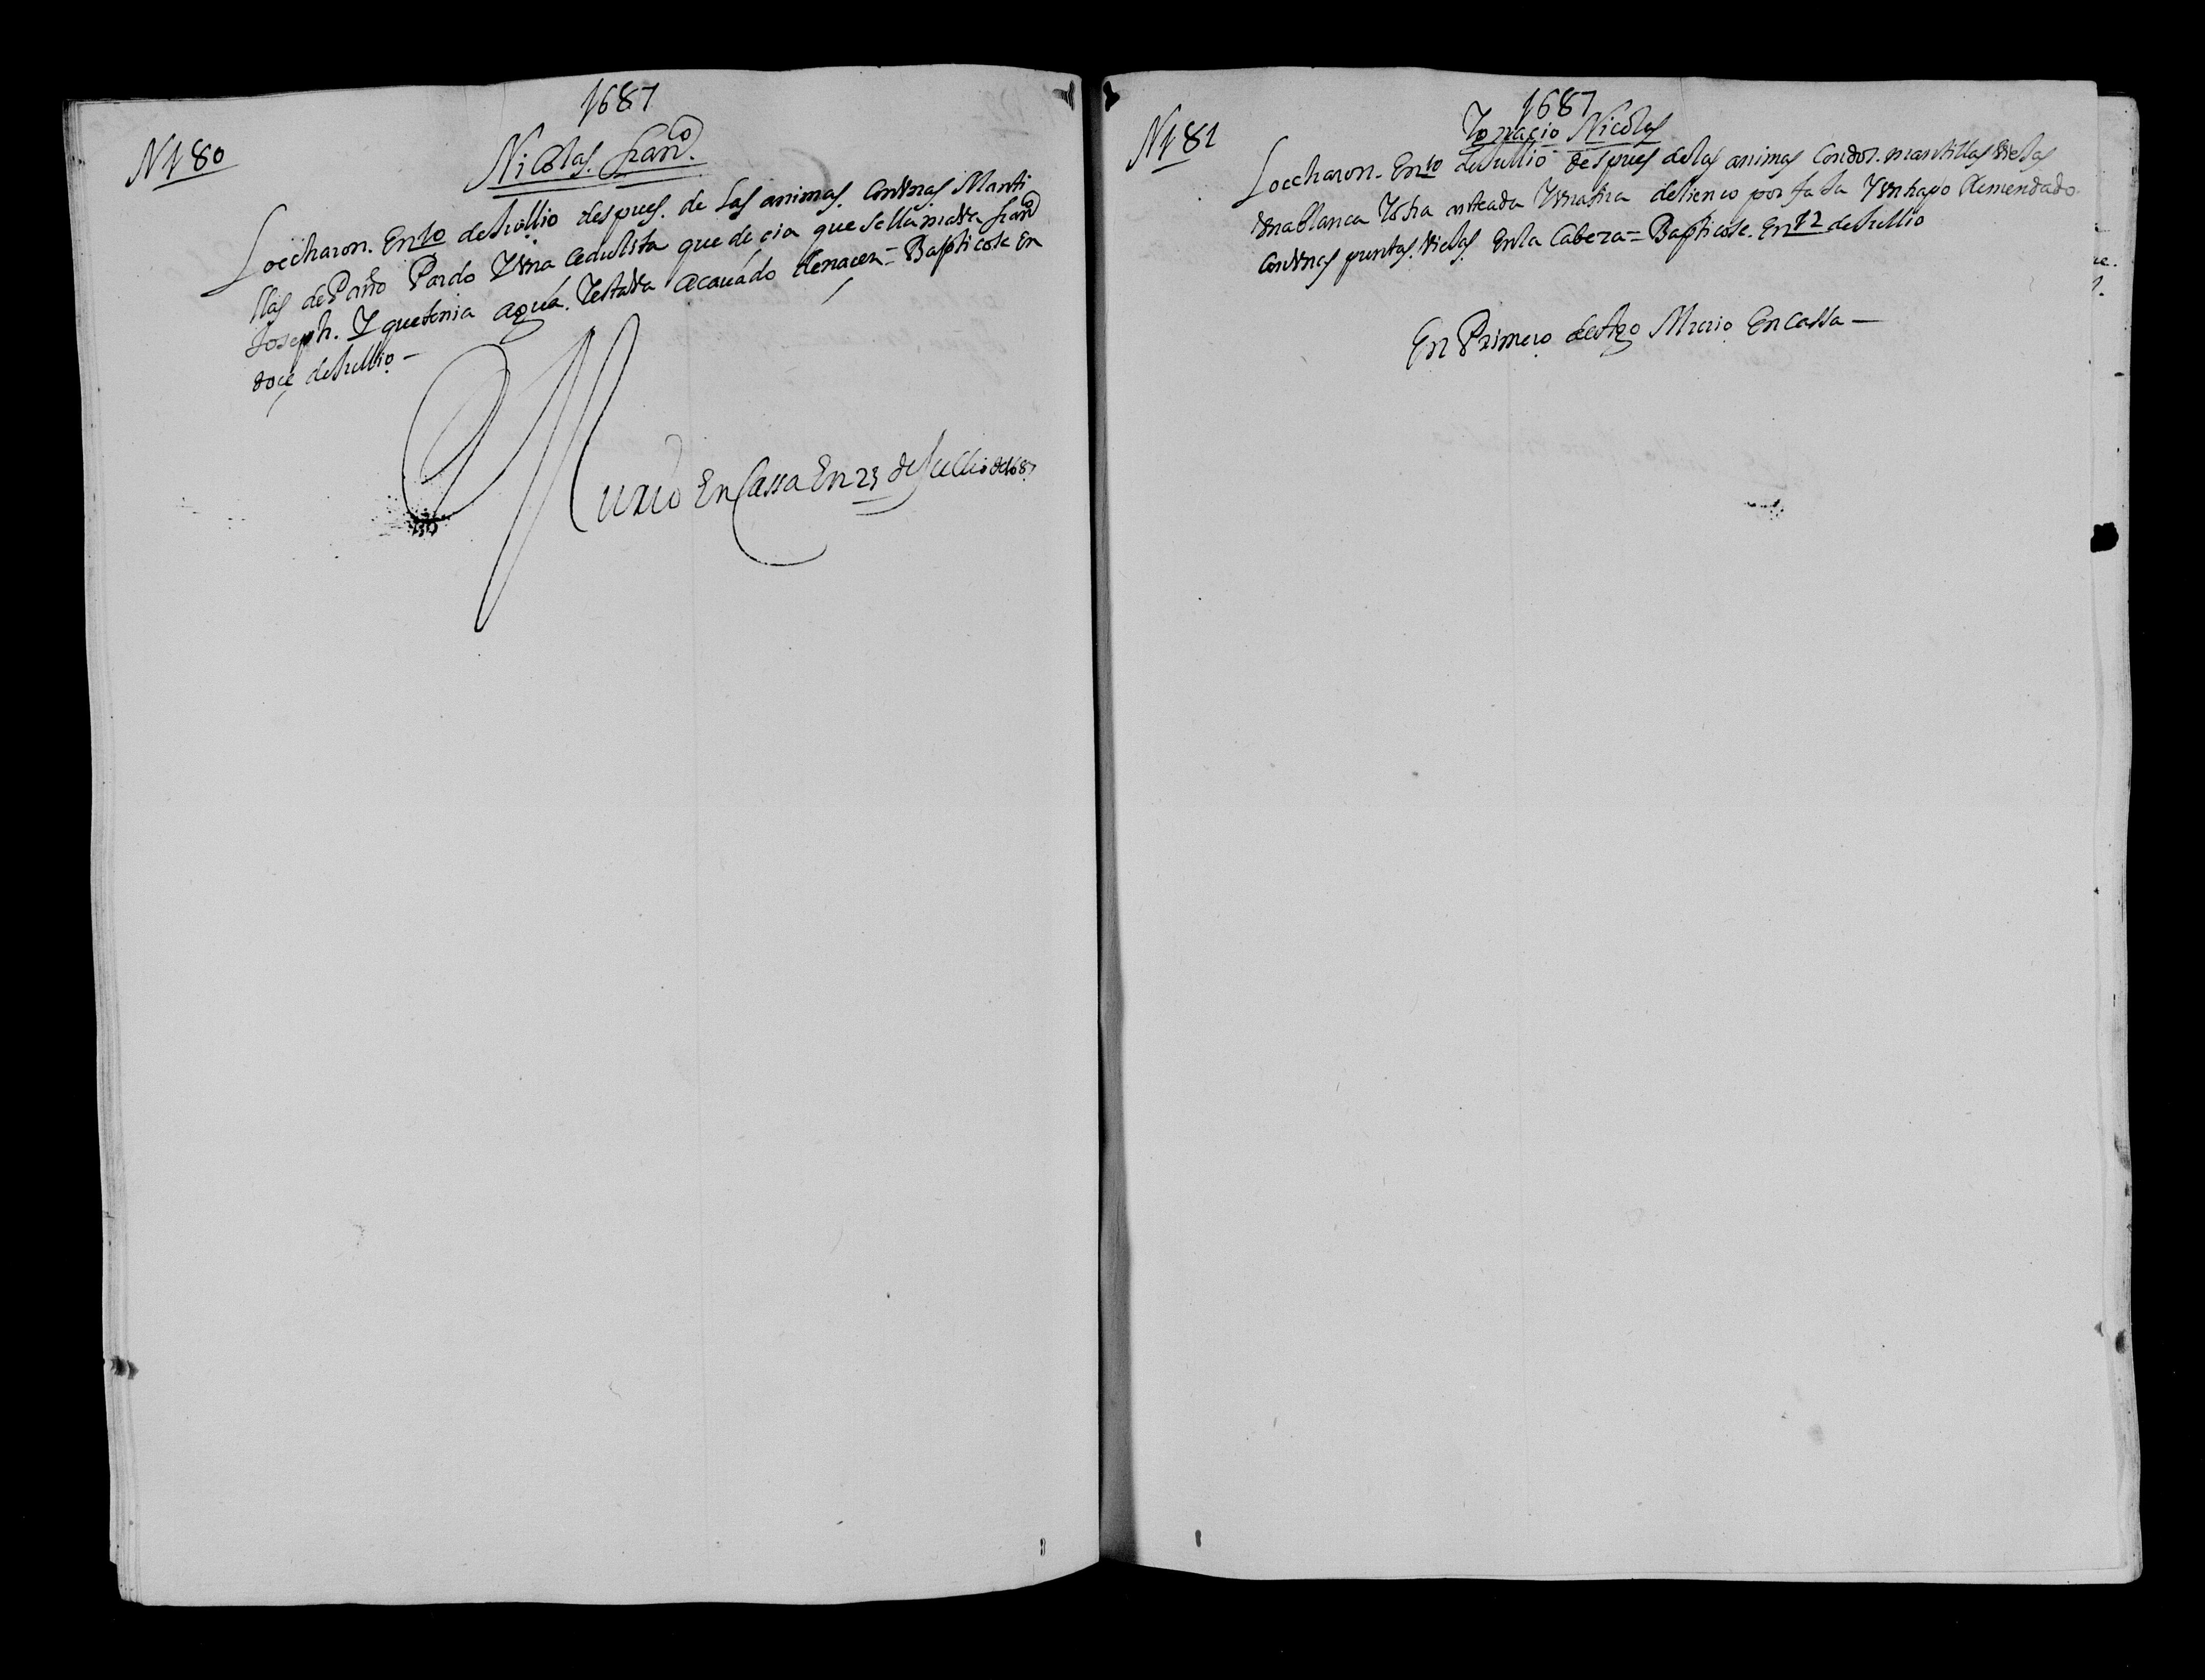 1687
N 180
Nicolas. franco.
Loecharon. En 10 de Jullio despues. de las animas. Con Vnas. Manti
llas de Paño Pardo Y Vna Cedulita que decia que se llamaVa franco
Joseph. Y que tenia agua. Y estaVa acauado de nacer = Bapticose En
doce de Jullio. —
Murio En Cassa En 23 de Jullio de 1687
1687
N 181
Ygnacio Nicolas
Loecharon. En 10 de Jullio despues de las animas Con dos. mantillas Viejas
Vna blanca Y otra anteada Y Vna tira de lienco por faja Y Vn trapo Remendado.
Con Vnas puntas. Viejas. En la Cabeza = Bapticose. En 12 de Jullio
En Primero de Ago Murio En Cassa —